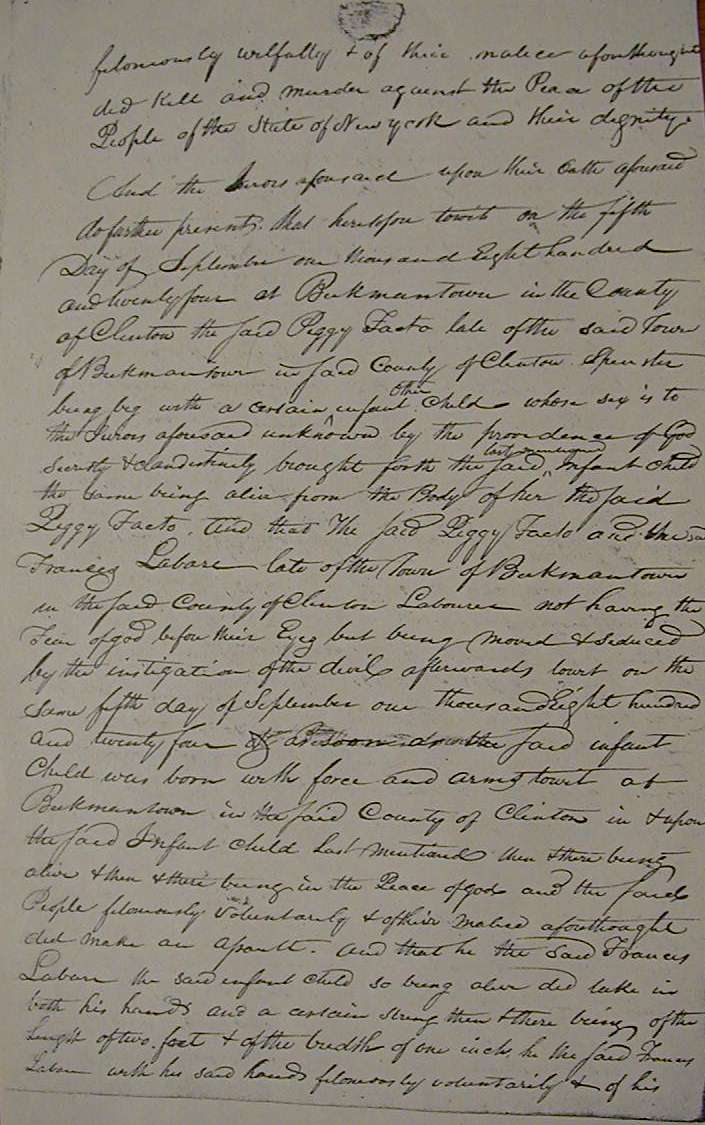 feloniously wilfully & of their malice aforethought
did kill and murder against the Peace of the
People of the State of New york and their dignity.
And the Jurors aforesaid upon their Oath aforesaid
do further present. that heretofore towit on the fifth
Day of September one thousand Eight hundred
and twenty four at Beekmantown in the County
of Clinton the said Peggy Facto late of the said Town
of Beekmantown in said County of Clinton. Spinster
being big with a certain infant other Child whose sex is to
the Jurors aforesaid unknown by the providence of God
Secretly & clandestinely brought forth the said last mentioned Infant child
the same being alive from the Body of her the said
Peggy Facto. And that The said Peggy Facto and the sd
Francis Labare late of the Town of Beekmantown
in the said County of Clinton Labourer not having the
Fear of god before their Eyes but being moved & seduced
by the instigation of the devil afterwards towit on the
same fifth day of September one thousand Eight hundred
and twenty four as soon as the said infant
Child was born with force and arms towit at
Beekmantown in the said County of Clinton in & upon
the said Infant Child last mentioned then & there being
alive & then & there being in the Peace of god and the said
People feloniously voluntarily & of their malice aforethought
did make an assault. And that he the said Francis
Labare the said infant child so being alive did take in
both his hands and a certain string then & there being of the
length of two feet & of the breadth of one inch he the said Francis
Labare with his said hands feloniously voluntarily & of his